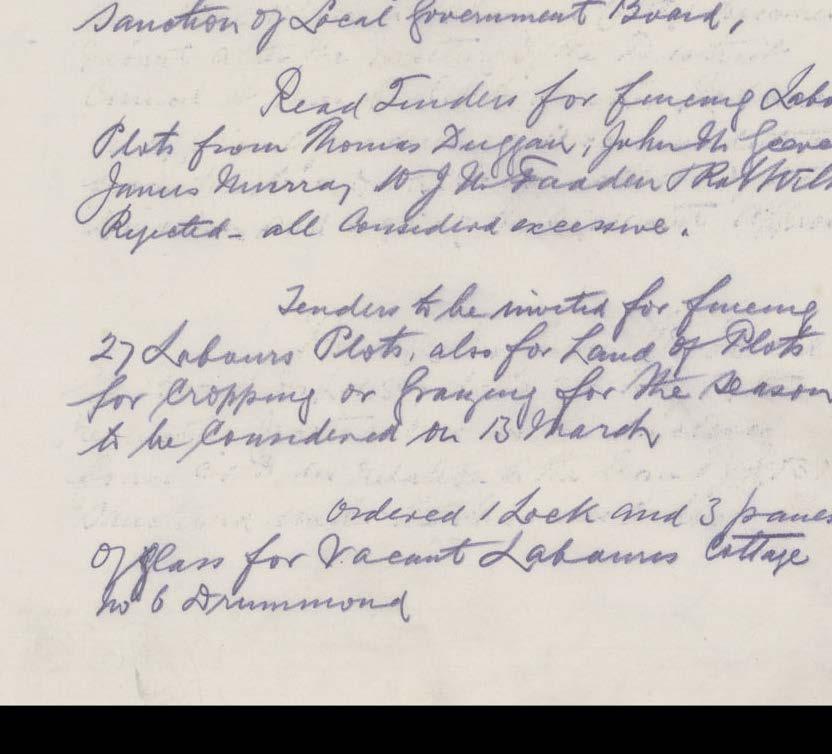 Sanction of Local Government Board,
Read Tenders for fencing Labo
Plots from Thomas Duggan, John Mc
James Murray, W J McFadden
Rejected - all Considered excessive.
Tenders to be invited for fencing
27 Labours Plots, also for Land of Plots
for Cropping or Grazing for the Season
to be Considered on 13 March,
Ordered 1 Lock and 3 panes
Of Glass for Vacant Labourers Cottage
No 6 Drummond